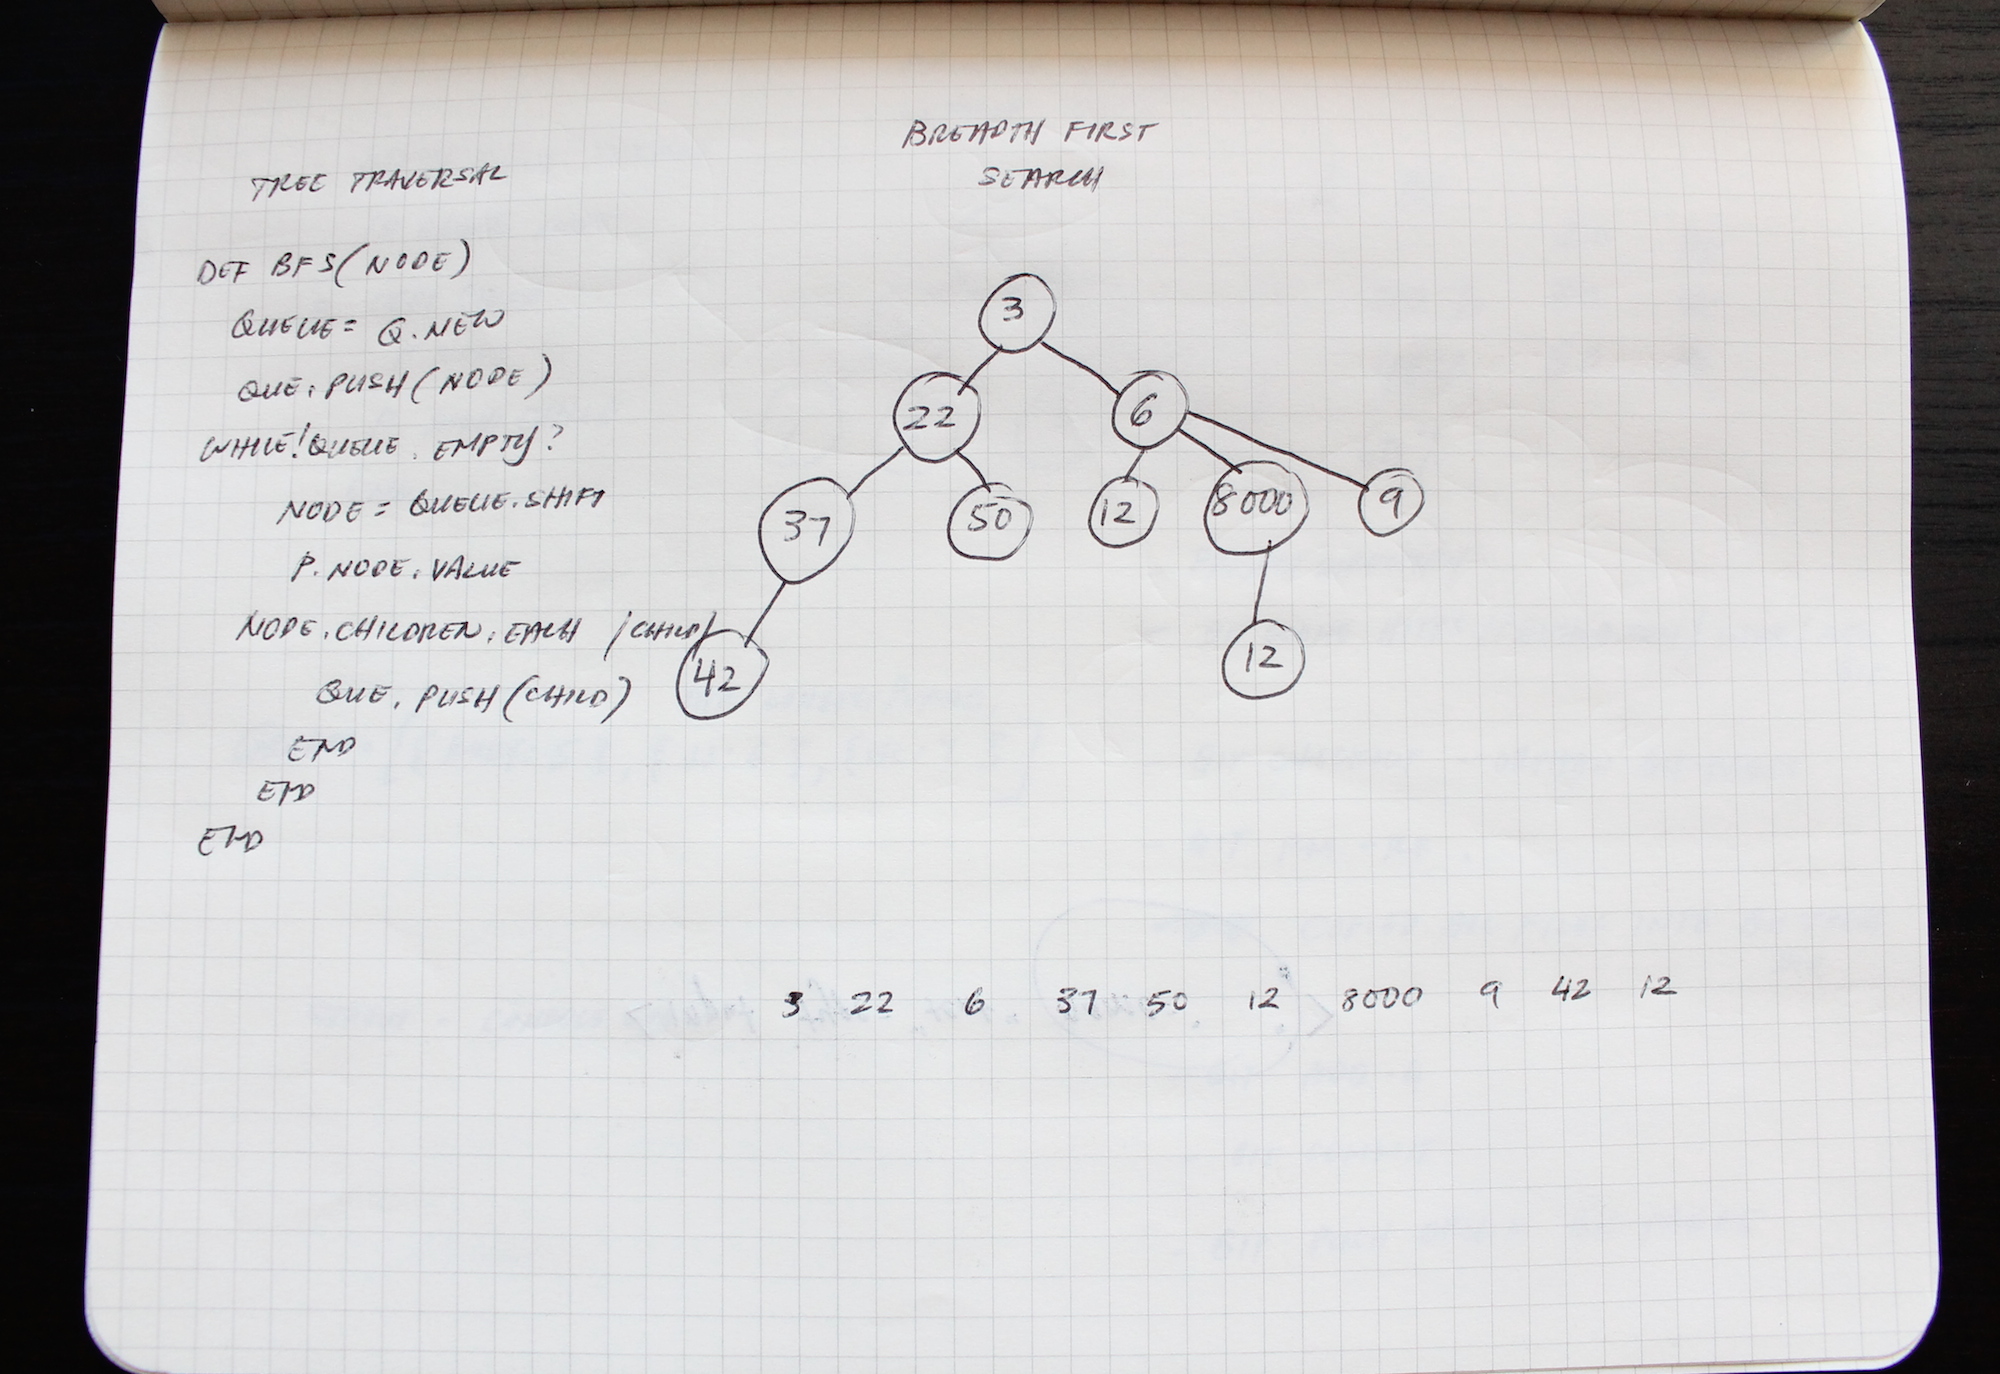 BREADTH FIRST
SEARCH
TREE TRAVERSAL
DEF BFS(NODE)
QUEUE = Q.NEW
QUE.PUSH(NODE)
WHILE!QUEUE.EMPTY?
NODE = QUEUE.SHIFT
P.NODE.VALUE
NODE.CHILDREN.EACH |CHILD|
QUE.PUSH(CHILD)
END
END
END
3
22 6
37 50 12 8000 9
42 12
3 22 6 37 50 12 8000 9 42 12